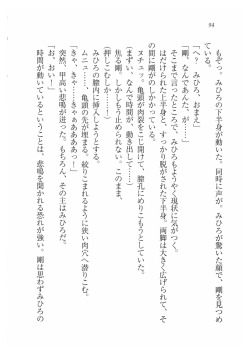 94
もぞっ。みひろの下半身が動いた。同時に声が。みひろが驚いた顔で、剛を見つめ
ている。
「へっ、みひろ、おまえ」
「剛、なんであんた、が……」
そこまで言ったところで、みひろもようやく現状に気がつく。
はだけられた上半身と、すっかり脱がされた下半身。両脚は大きく広げられて、そ
の間に剛がのしかかっている。
ヌチュニッ。亀頭が肉裂をこじ開けて、膣孔にめりこもうとしていた。
(まずい、なんで時間が、動き出して……)
焦る剛。しかしもう止められない。このまま、
(押しこむしか……!)
ムニュニニ……、亀頭の先が埋まる。絞りこまれるように狭い肉穴へ潜りこむ。
みひろの膣内に挿入しようとする。
「きゃ、きゃ……きゃぁぁあああっ!」
突然、甲高い悲鳴が迸った。もちろん、その主はみひろだ。
「お、おい!」
時間が動いているということは、悲鳴を聞かれる恐れが強い。剛は思わずみひろの